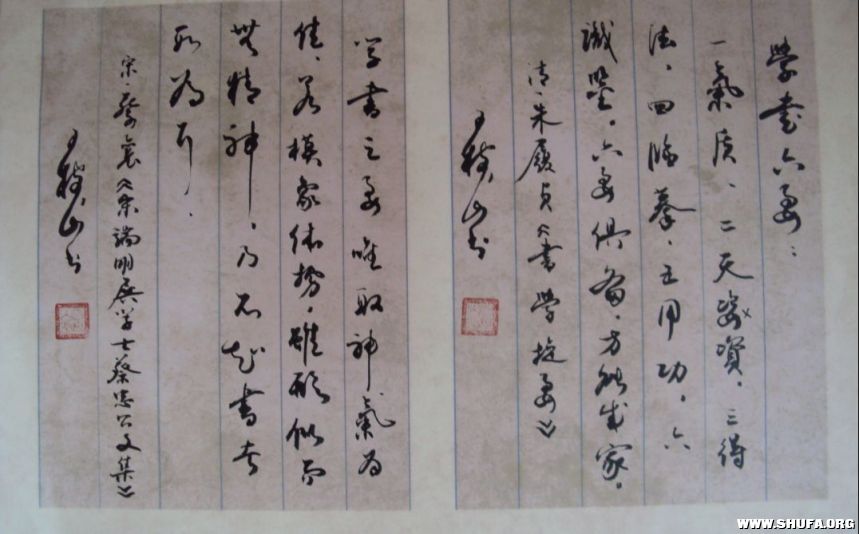 學書六要：
一氣质、二天姿資、三得
法、四臨摹、五用功、六
識鑒。六要俱备，方能成家。
清·朱履贞《書學捷要》
山书
学書之要唯取神氣为
佳，若模象体势，雖形似而
無精神，乃不知書者
所為耳。
宋·蔡襄《宋端明殿学士蔡忠公文集》
山书
WWW.SHUFA.ORG